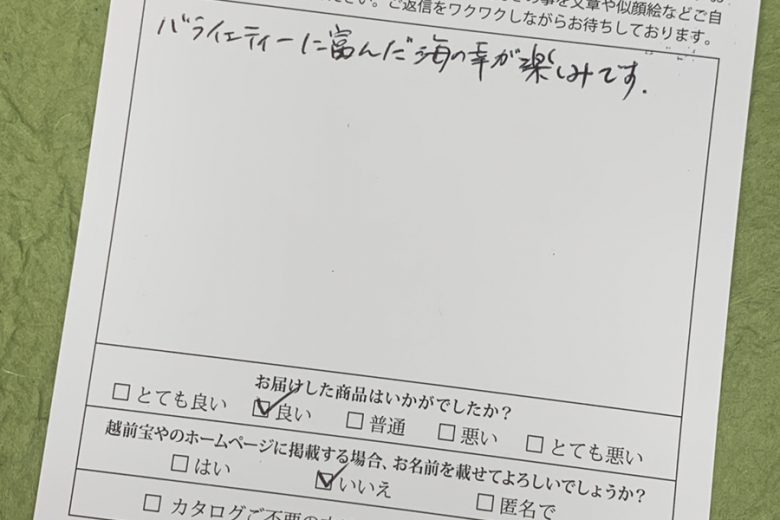 の事を文章や似顔絵などご自
ださい。ご返信をワクワクしながらお待ちしております。
バラィエティーに富んだ海の幸が楽しみです.
お届けした商品はいかがでしたか？
□とても良い ☑良い □普通 □悪い □とても悪い
越前宝やのホームページに掲載する場合、お名前を載せてよろしいでしょうか？
□はい ☑いいえ □匿名で
□カタログご不要の方